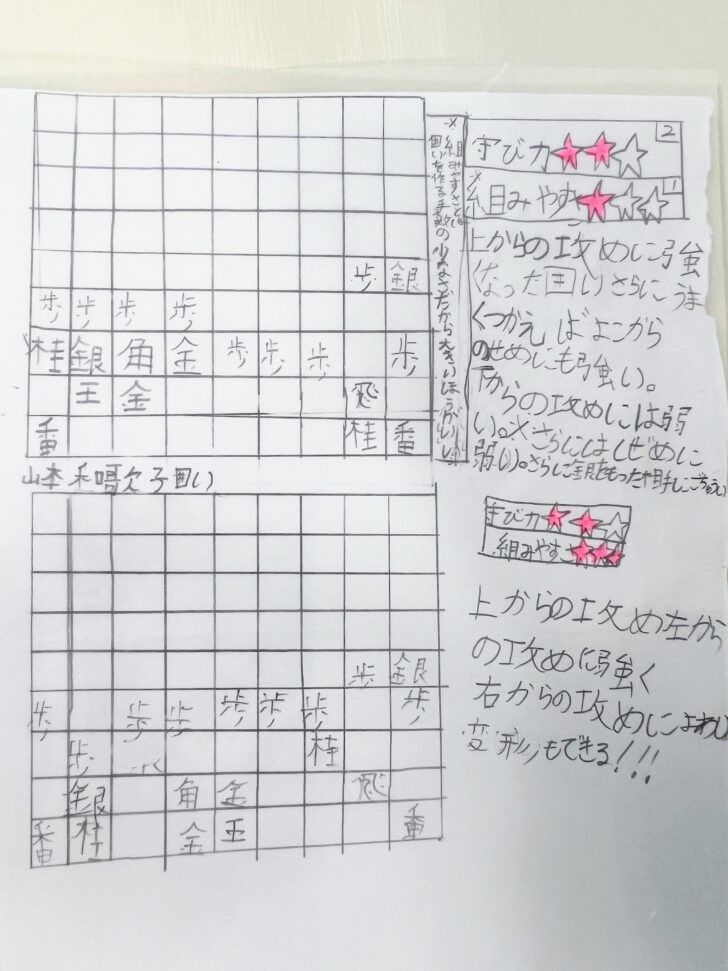 歩 銀
歩 歩 歩 歩
桂 銀 角 金 歩 歩 歩 歩
王 金 飛
香 桂 香
※組みやすさとは
囲いを作る手数の少なさだから大きいほうがいいよ
2
守び力★★☆
※1
組みやすさ★☆☆
上からの攻めに強
くなった囲いさらにうま
くつかえばよこから
のせめにも強い。
下からの攻めには弱
い。※さらにはしぜめに
弱い。さらに銀をもった相手にごちゅうい
囲い
歩 銀
歩 歩 歩 歩 歩 歩 歩
歩 桂
銀 角 金 飛
香 桂 金 王 香
守び力★★☆
組みやすさ★★★
上からの攻め左から
の攻めに強く
右からの攻めによわい
変形もできる!!!